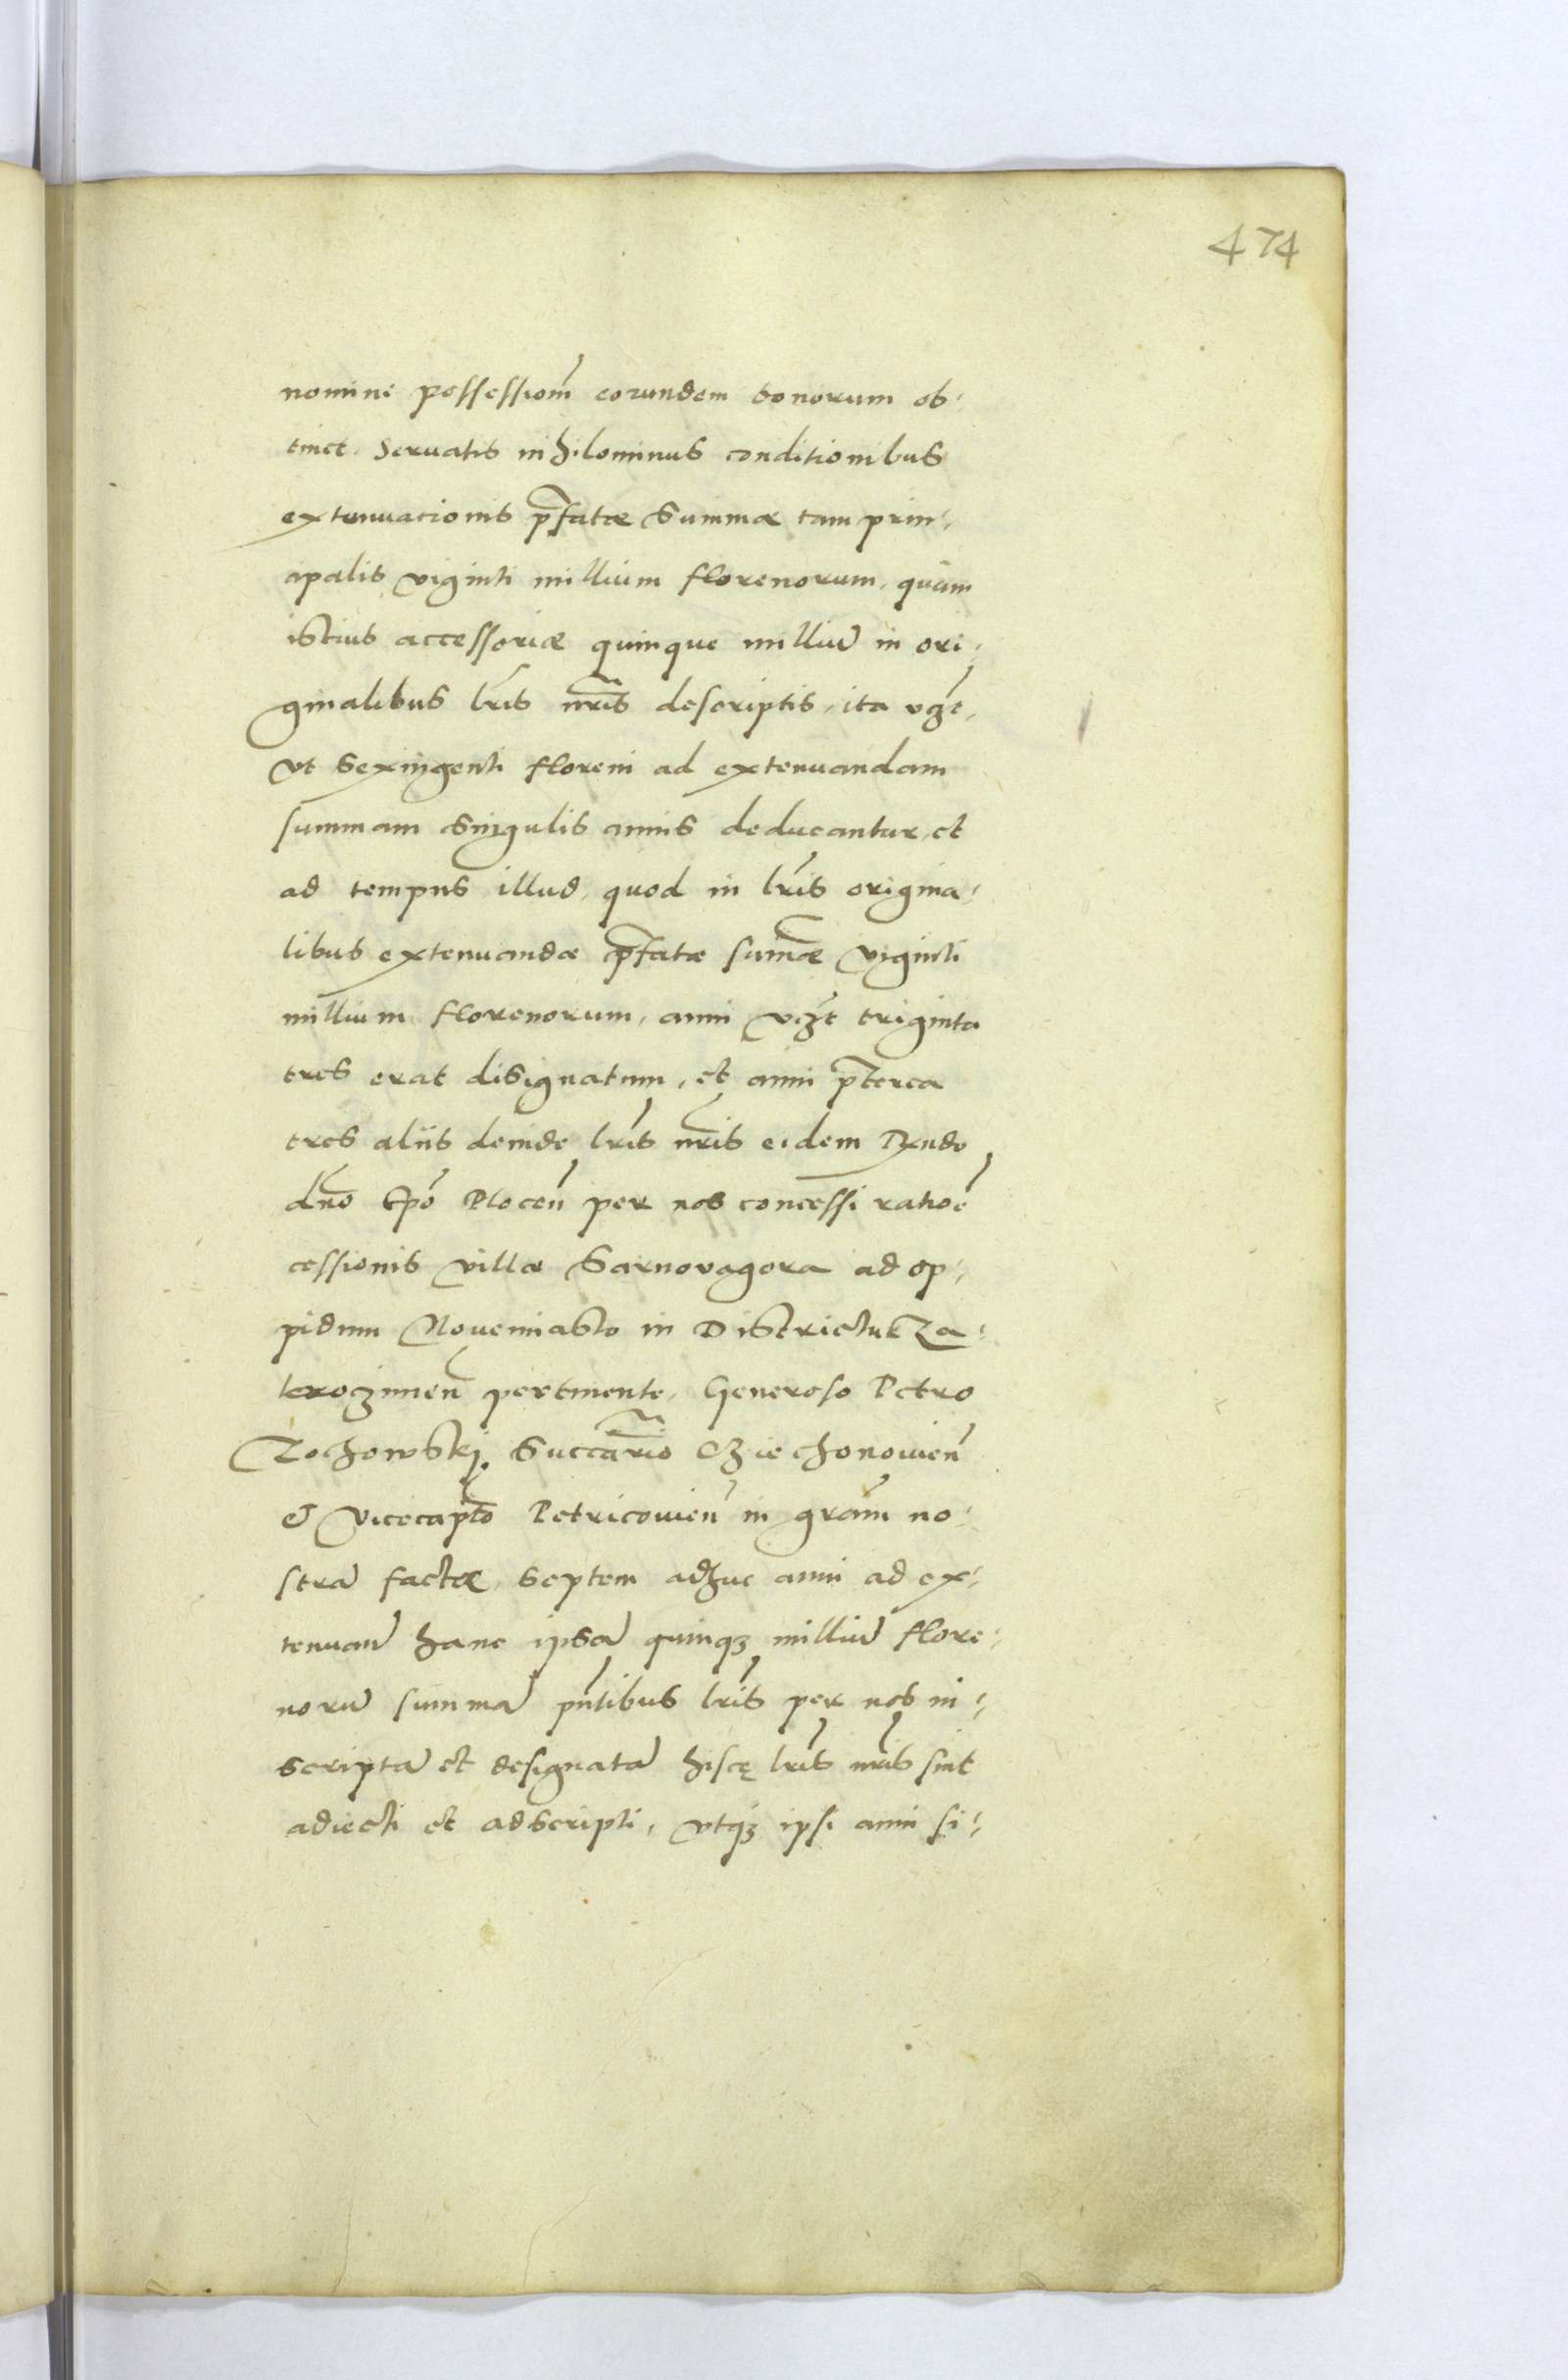 474
nomine possessiom̃ eorundem bonorum ob-
tinet. Seruatis nihilominus conditionibus
extenuationis p̃fatæ Summæ tam prin-
cipalis viginti millium florenorum, quàm
istius accessoriæ quinque milliũ in ori-
ginalibus lr̃is nr̃is descriptis, ita vcz̃t,
vt sexingenti floreni ad extenuandam
summam singulis annis deducantur, et
ad tempus illud, quod in lr̃is origina-
libus extenuandæ p̃fatæ sum̃æ viginti
millium florenorum, anni vcz̃t triginta
tres erat disignatum, et anni p̃terea
tres aliis deinde lr̃is nr̃is eidem Rx̃ndo
dño Ep̃o Plocen̄ per nos concessi ratioẽ
cessionis villæ Sarnovagora ad op-
pidum Novemiasto in Districtu Za-
kroczimen̄ pertinente, Generoso Petro
Zochowskj. Succam̃rio Cziechonouien̄
et Vicecapt̃o Petricouien̄ in grãm no-
strã factæ, septem adhuc anni ad ex-
tenuan̄ hanc ipsã quinqz milliũ flore-
norũ summã pñtibus lr̃is per nos in-
scriptã et designatã hiscę lr̃is nr̃is sint
adiecti et adscripti, vtqz ipsi anni si-